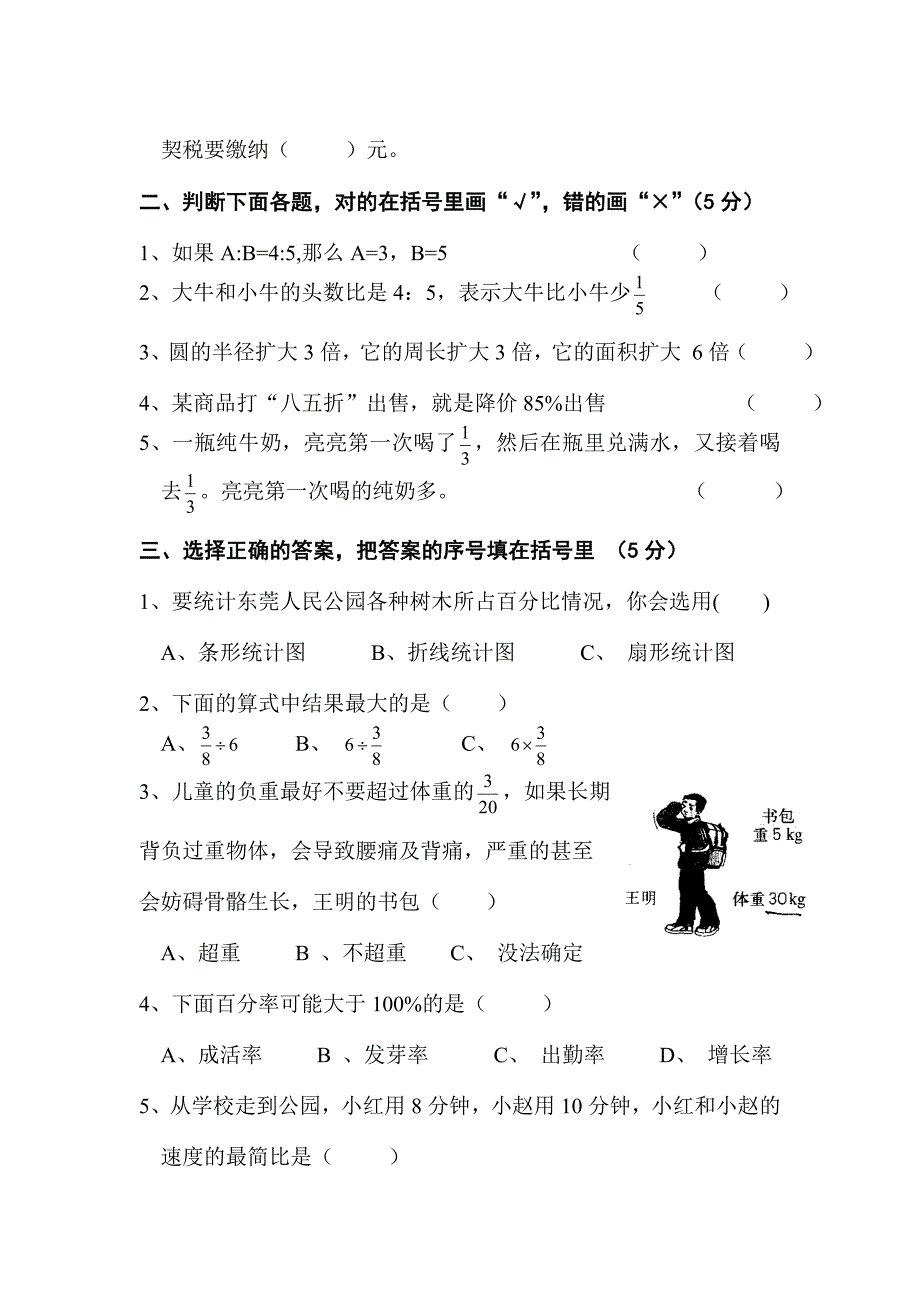 契税要缴纳（　　）元。
二、判断下面各题，对的在括号里画“√”，错的画“×”（5 分）
1、如果 A:B=4:5,那么 A=3，B=5 （　　）
2、大牛和小牛的头数比是 4：5，表示大牛比小牛少1/5 （　　）
3、圆的半径扩大 3 倍，它的周长扩大 3 倍，它的面积扩大 6 倍（　　）
4、某商品打“八五折”出售，就是降价 85%出售 （　　）
5、一瓶纯牛奶，亮亮第一次喝了1/3，然后在瓶里兑满水，又接着喝
去1/3。亮亮第一次喝的纯奶多。 （　　）
三、选择正确的答案，把答案的序号填在括号里 （5 分）
1、要统计东莞人民公园各种树木所占百分比情况，你会选用(　　)
A、条形统计图 B、折线统计图 C、 扇形统计图
2、下面的算式中结果最大的是（　　）
A、3/8÷6 B、 6÷3/8 C、 6×3/8
3、儿童的负重最好不要超过体重的3/20，如果长期
背负过重物体，会导致腰痛及背痛，严重的甚至
会妨碍骨骼生长，王明的书包（　　）
书包
重5kg
王明 体重30kg
A、超重 B 、不超重 C、 没法确定
4、下面百分率可能大于 100%的是（　　）
A、成活率 B 、发芽率 C、 出勤率 D、 增长率
5、从学校走到公园，小红用 8 分钟，小赵用 10 分钟，小红和小赵的
速度的最简比是（　　）